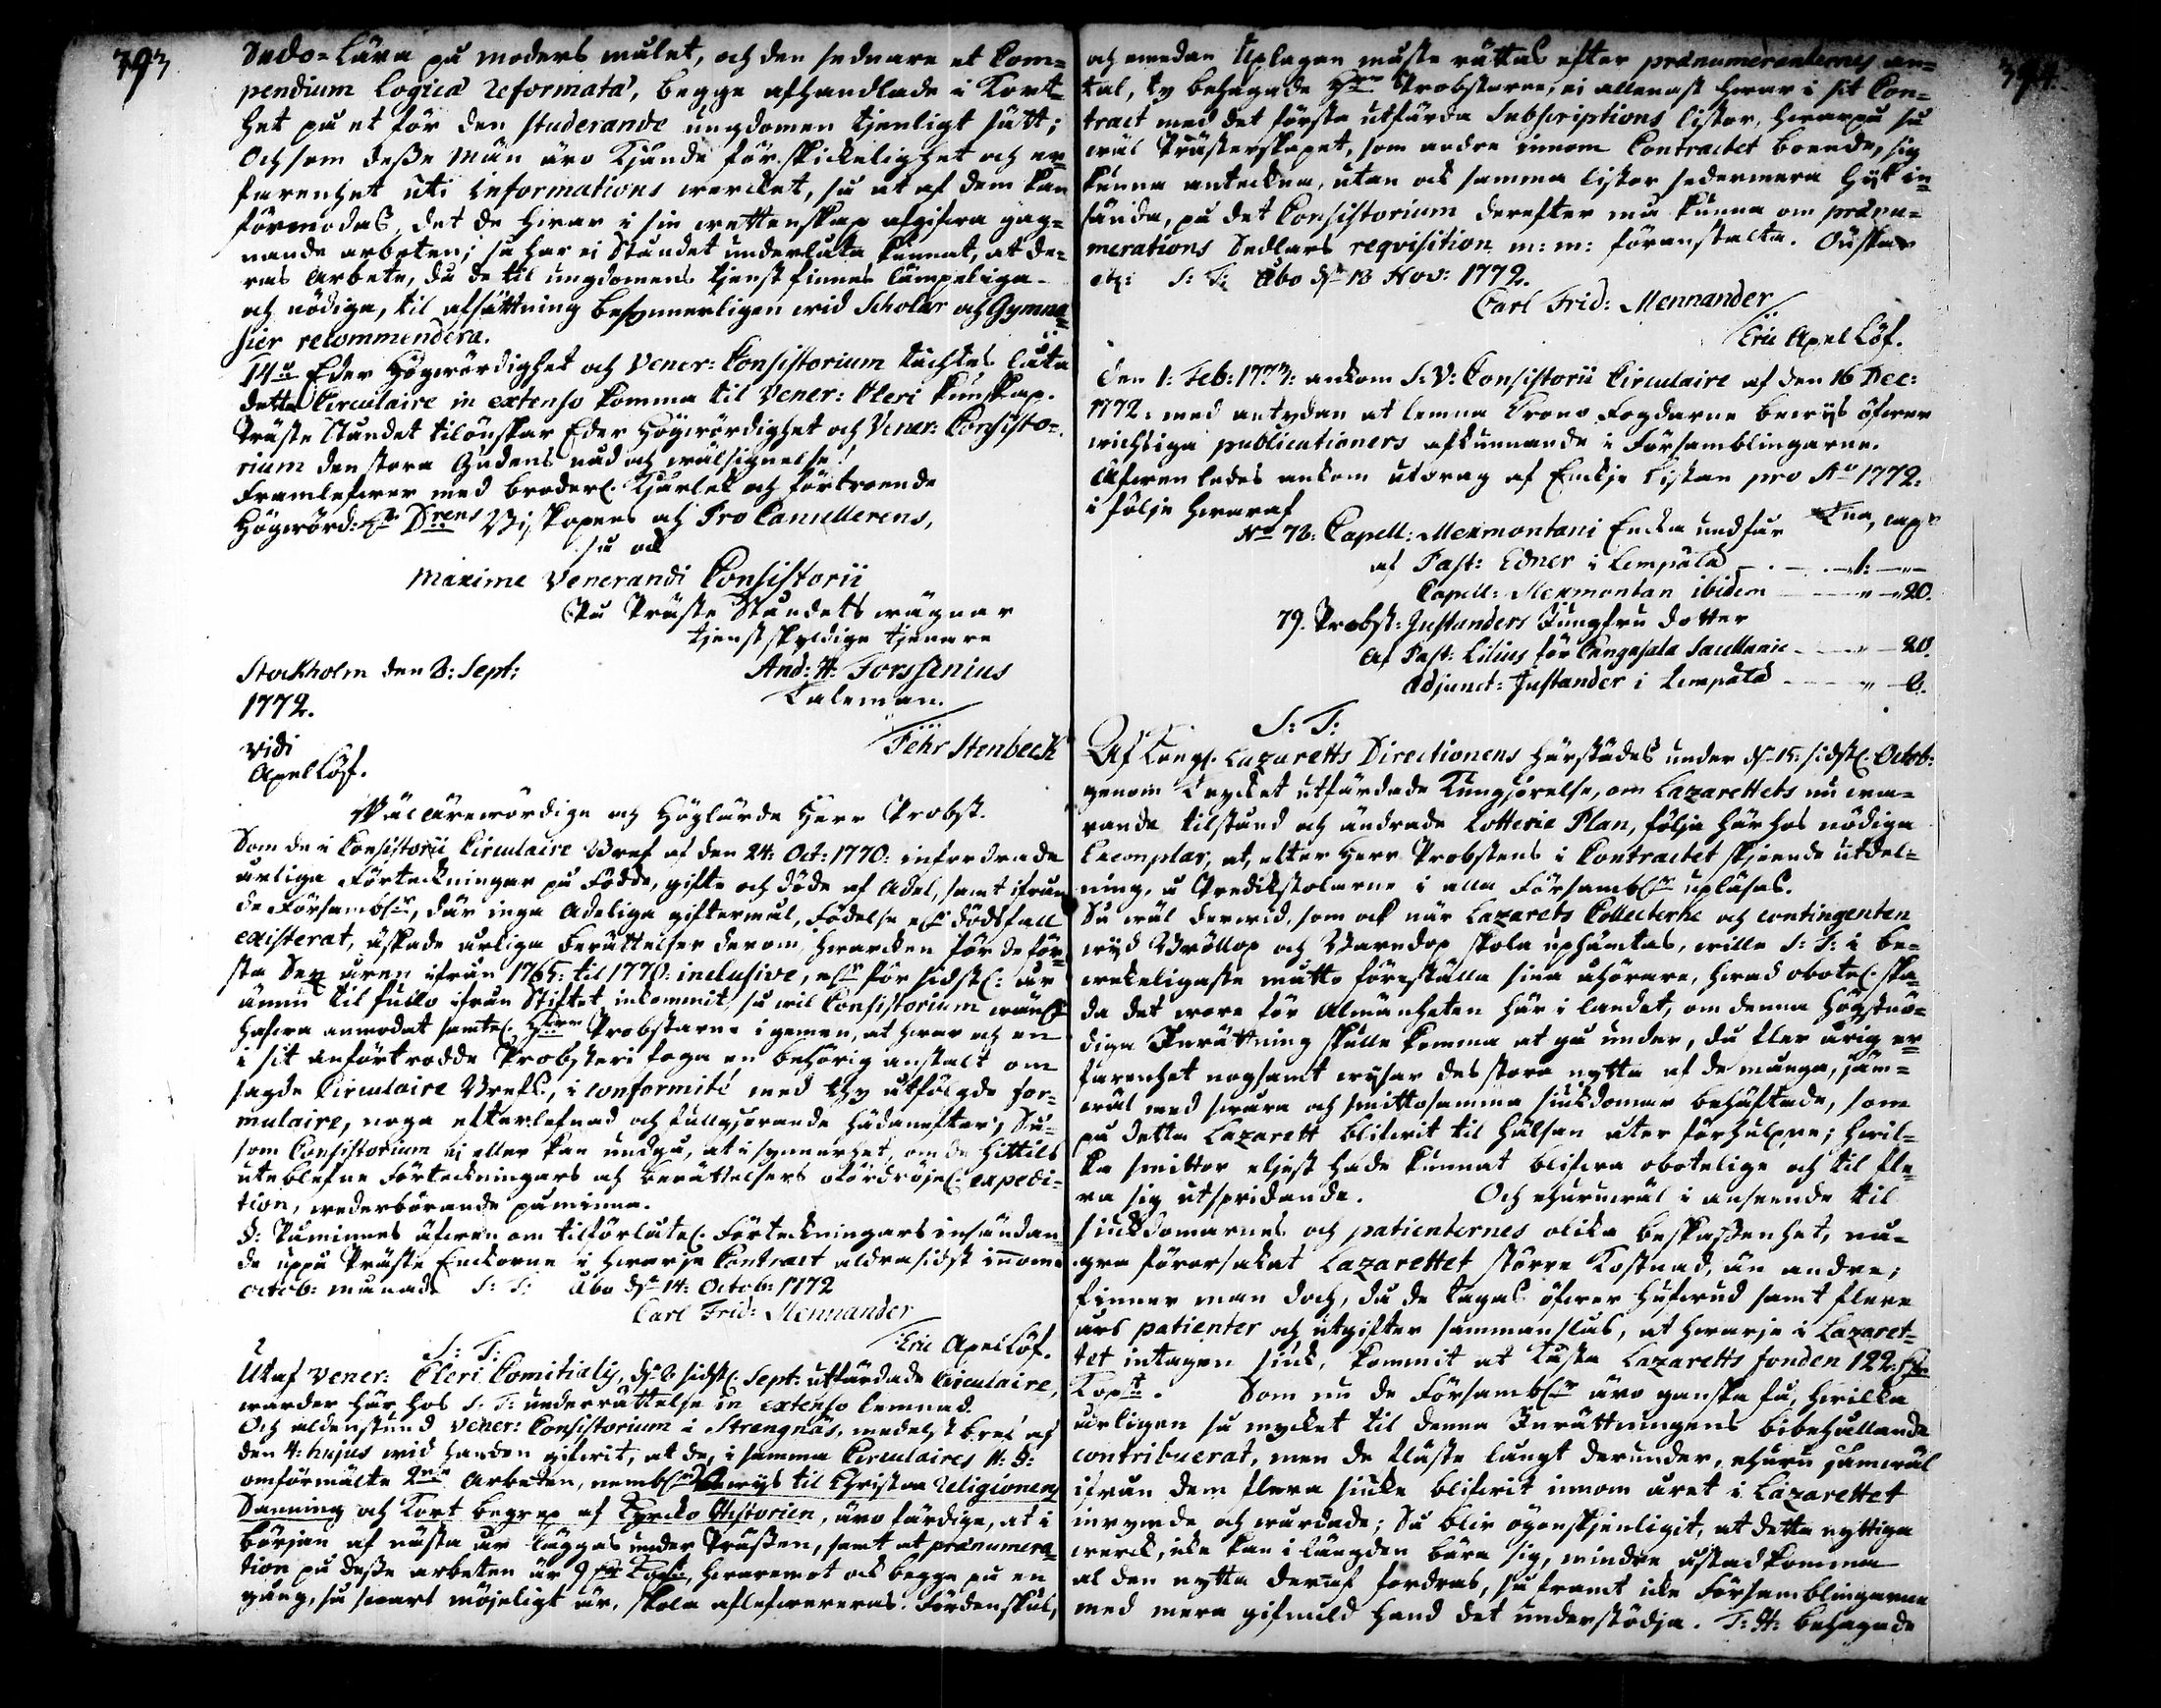 393
Sedo-Lära på moders målet, och den sednare et Com=
pendium Logicæ reformatæ, begge afhandlade i Kort=
het på et för den studerande ungdomen tjenligt sätt;
Och som desse Män äro Kjände för skickelighet och er=
farenhet uti informations wercket, så at af dem kan
förmodas, det de hwar i sin wettenskap afgifwa gag=
nande arbeten; så har ei Ståndet underlåta kunnat, at de=
ras arbete, då de til ungdomens tjenst finnes lämpeliga
och nödige, til afsättning besynnerligen wid Scholar och Gymna=
sier recommendera.
14:o Eder Högwördighet och Vener: Consistorium täcktes låta
detta Circulaire in extenso komma til Vener: Cleri kunskap.
Präste Ståndet tilönskar Eder Högwördighet och Vener: Consisto=
rium den stora Gudens nåd och wälsignelse!
Framlefwer med broderl. Kjärlek och förtroende
Högwörd: Hr Drens Biskopens och Pro Cancellerens,
så ock
Maxime Venerandi Consistorii
På Präste Ståndets wägnar
tjenstskyldige tjenare
Stockholm den 8: Sept:
And: H: Forssenius
1772.
Taleman.
vidi
Fehr Stenbeck
ApelLöf.
Wäl ärewördige och Höglärde Herr Probst.
Som de i Consistorii Circulaire Bref af den 24: Oct: 1770: infordrade
årliga Förteckningar på Födde, gifte och döde af Adel, samt ifrån
de Försambl:r, där inga Adeliga giftermål, Födelse el:r dödsfall
existerat, äskade årliga berättelser derom, hwarcken för de för=
sta Sex åren ifrån 1765: til 1770: inclusive, el:r för sidstl: år
ännu til fullo ifrån Stiftet inkommit, så wil Consistorium wänl:t
hafwa anmodat samtel. Herrr Probstarne i gemen, at hwar och en
i sit anförtrodde Probsteri foga en behörig anstalt om
sagde Circulaire Brefs, i conformité med thy utfölgde for=
mulaire, noga efterlefnad och fullgjörande hädanefter; Så=
som Consistorium ej eller kan undgå, at i synnerhet, om de hittils
uteblefne Förteckningars och berättelsers ofördröjel: expedi=
tion, wederbörande påminna.
§: Påminnes äfwen om tilförlåtel. Förteckningars insändan=
de uppå Präste Enckorne i hwarje Contract aldrasidst innom
Octob: månad S: T: Åbo d: 14: Octob: 1772
Carl Frid: Mennander
Eric ApelLöf.
S: T:
Utaf Vener: Cleri Comitialis, d: 8 sidstl. Sept: utfärdade Circulaire,
warder här hos S: T: underrättelse in extenso lemnad.
Och aldenstund Vener: Consistorium i Strengnäs, medelst bref af
den 4: hujus wid handen gifwit, at de, i samma Circulaires 11: §:
omförmälte 2:ne Arbeten, nembl:n Bewys til Christna Religionens
Sanning och Kort begrep af Kyrcko Historien, äro färdige, at i
början af nästa år läggas under Prässen, samt at prænumera=
tion på desse arbeten är 9 Kopt:, hwaremot ock begge på en
gång, så snart möjeligt är, skola aflefwereras. Fördenskul,
394.
och emedan Uplagan måste rättas efter prænumeranternes an=
tal, ty behagade Hrrr Probstarne, ei allenast hwar i sit Con=
tract med det första utfärda Subscriptions listor, hwarpå så
wäl Prästerskapet, som andre innom Contractet boende, sig
kunna anteckna, utan ock samma listor sedermera hyt in=
sända, på det Consistorium derefter må kunna om prænu=
merations Sedlars reqvisition m: m: föranstalta. Önskar
etc: S: T: Åbo d: 18 Nov: 1772.
Carl Frid: Mennander
Eric ApelLöf.
Den 1: Feb: 1773: ankom S: V: Consistorii Circulaire af den 16 Dec:
1772: med antydan at lemna Krono Fogdarne bewys öfwer
wichtiga publicationers afkunnande i Församblingarne.
Äfwenledes ankom utdrag af Enckje Listan pro Ao 1772:
i följe hwaraf
No 72: Capell: Mexmontani Encka undfår
af Past: Edner i Lempälä
Capell: Mexmontan ibidem 20.
79. Probst: Justanders Jungfru dotter
af Past: Lilius för Cangasala Sacellanie 20.
Adjunct: Justander i Lempälä 6.
S: T:
Af Kongl. Lazaretts Directionens härstädes under d: 15: sidstl. Octob:
genom trycket utfärdade Kungjörelse, om Lazarettets nu wa=
rande tilstånd och ändrade Lotterie Plan, följa här hos nödiga
Exemplar, at, efter Herr Probstens i Contractet skjeende utdel=
ning, å Predikstolarne i alla Försambl:r upläsas.
Så wäl derwid, som ock när Lazarets Collecterne och contingenten
wyd Bröllop och Barndop skola uphämtas, wille S: T: i be=
wekeligaste måtto föreställa sina åhörare, hwad obotel. ska=
da det wore för Almänheten här i landet, om denna högstnö=
diga Inrättning skulle komma at gå under, då fler årig er=
farenhet nogsamt wysar des stora nytta af de många, jäm=
wäl med swåra och smittosamma siukdomar behäftade, som
på detta Lazarett blifwit til hälsan åter förhulpne; hwil=
ka smittor eljest hade kunnat blifwa obotelige och til fle=
ra sig utspridande. Och ehuruwäl i anseende til
siukdomarnes och patienternes olika beskaffenhet, nå=
gra förorsakat Lazarettet större Kostnad, än andre;
finner man doch, då de tagas öfwer hufwud samt flere
års patienter och utgifter sammanslås, at hwarje i Lazaret=
tet intagen siuk, kommit at kosta Lazaretts fonden 122:
Kopt. Som nu de Försambl:r äro ganska få, hwilka
årligen så mycket til denna Inrättningens bibehållande
contribuerat, men de fläste långt derunder, ehuru jämwäl
ifrån dem flera siuke blifwit innom året i Lazarettet
inrymde och wårdade; Så blir ögonskjenligit, at detta nyttiga
werck, icke kan i längden bära sig, mindre åstadkomma
al den nytta deraf fordras, så framt icke Församblingarne
med mera gifmild hand det understödja. T: H: behagade